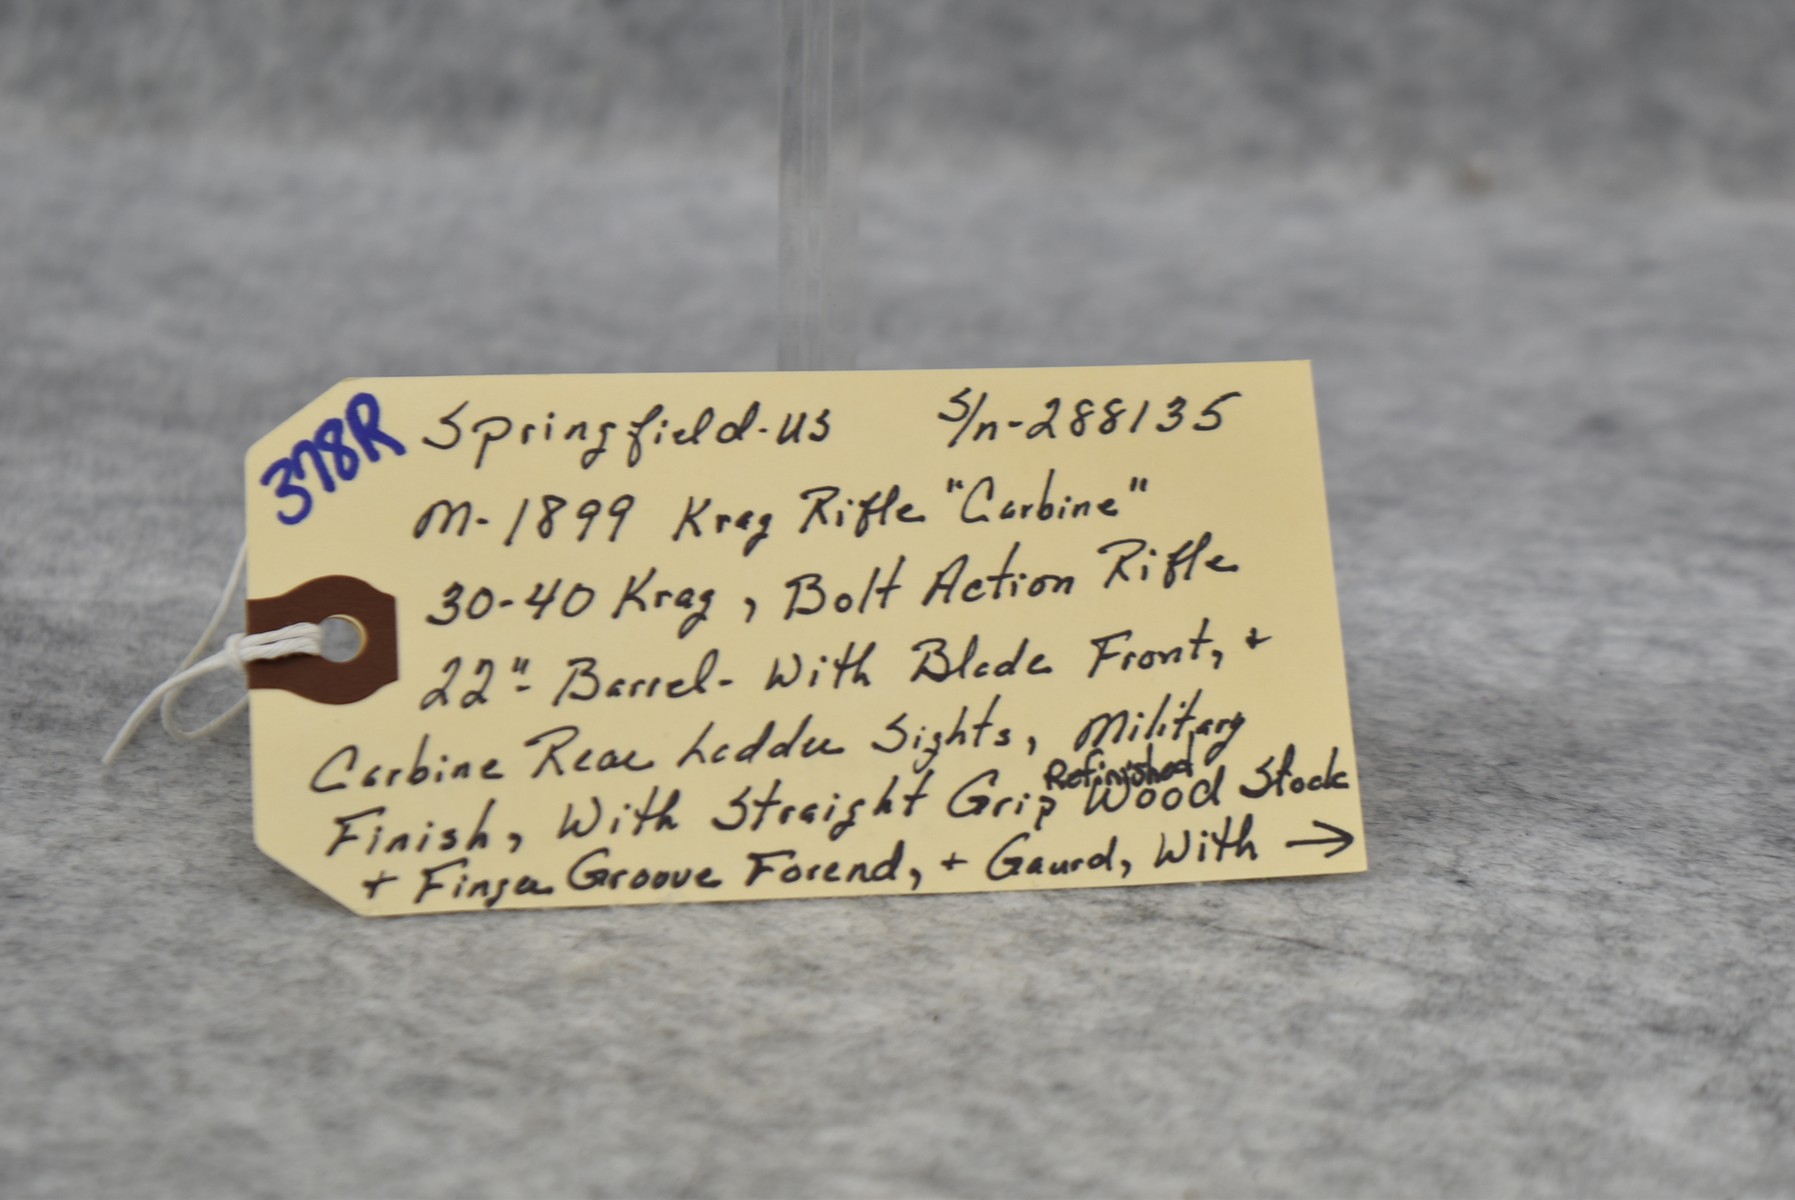 378R
Springfield-US S/n-288135
M-1899 Krag Rifle "Carbine"
30-40 Krag, Bolt Action Rifle
22"- Barrel- With Blade Front, +
Carbine Rear Ladder Sights, Military
Finish, With Straight Grip Refinished Wood Stock
+ Finger Groove Forend, + Gaurd, With →